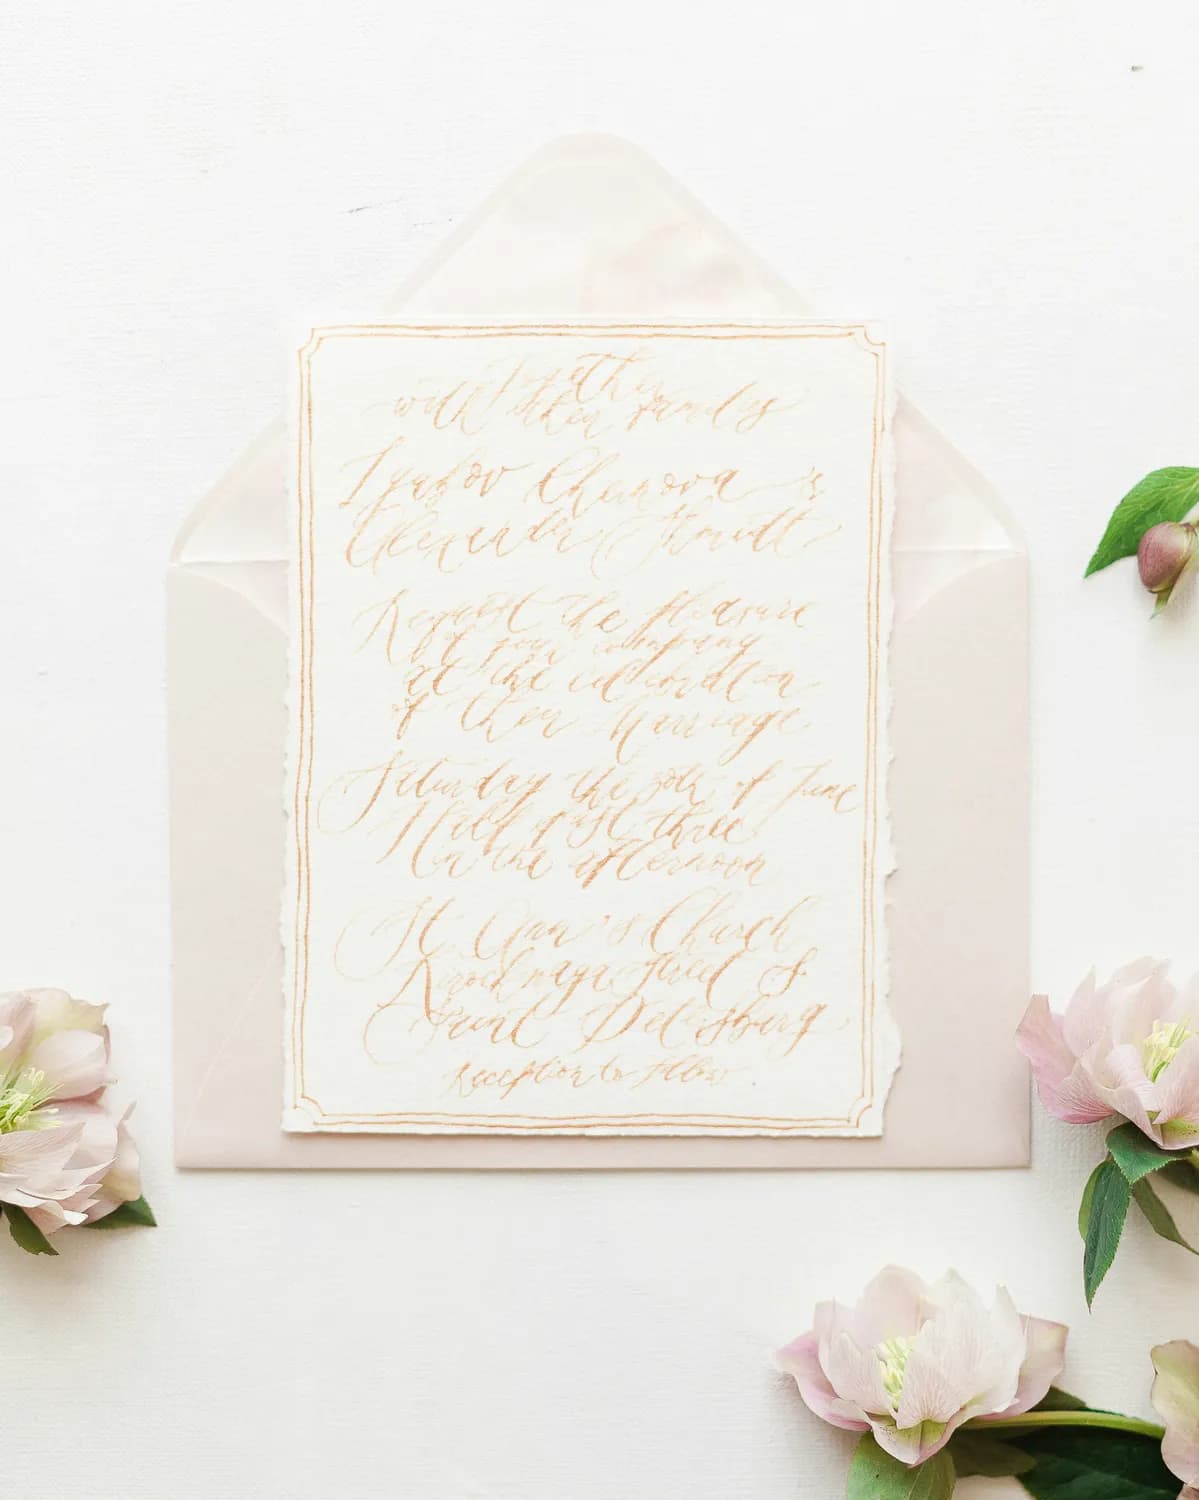 Together
with their familys
Lyubov Chernova &
Alexander Shmidt
Request the pleasure
of your company
at the celebration
of their Marriage
Saturday the 30th of June
Half past three
in the afternoon
St. Ann's Church
Kirochnaya Street 8
Saint Petersburg
Reception to follow